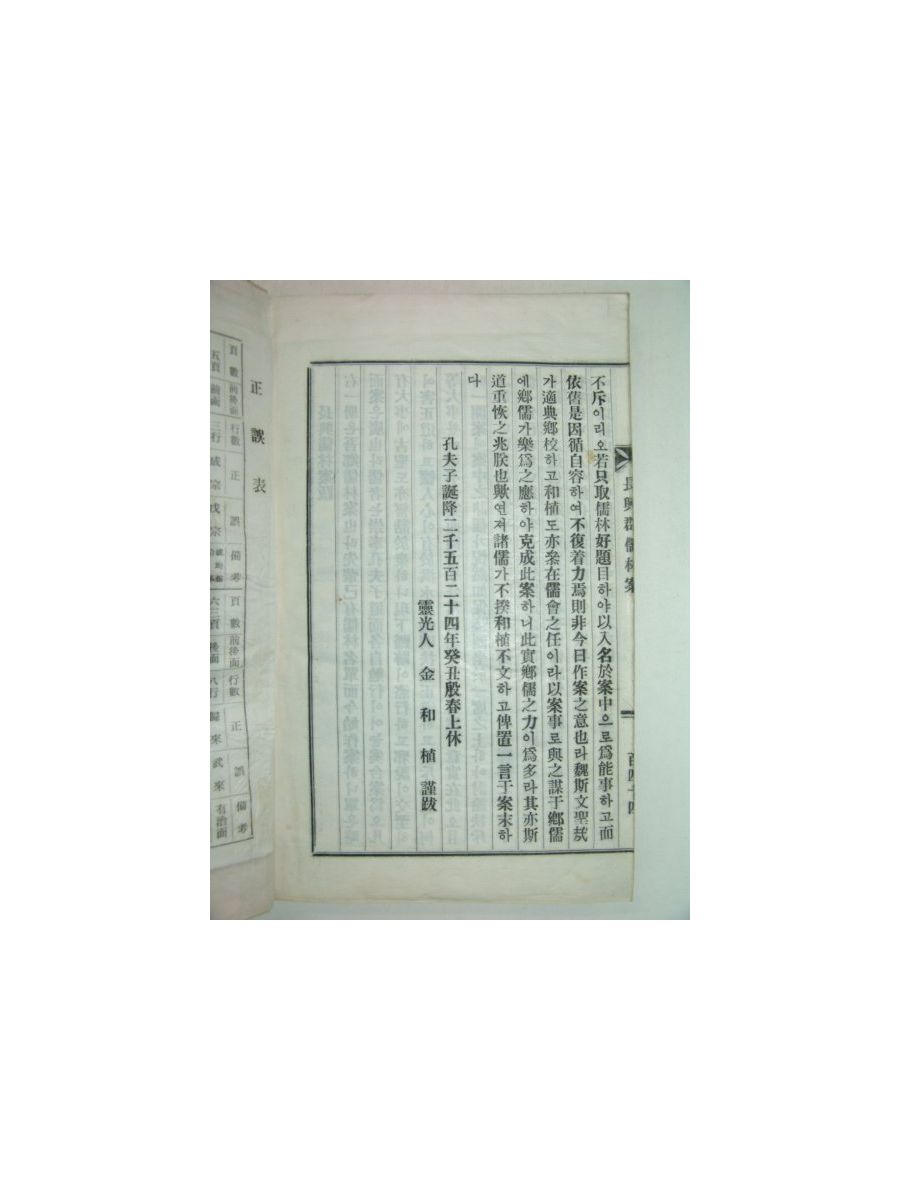 長興郡儒林案
不斥이리오若只取儒林好題目하야以入名於案中으로爲能事하고而
依舊是因循自容하여不復着力焉則非今日作案之意也라魏斯文聖㢤
가適典鄕校하고和植도亦叅在儒會之任이라以案事로與之謀于鄕儒
에鄕儒가樂爲之應하야克成此案하니此實鄕儒之力이爲多라其亦斯
道重恢之兆朕也歟연져諸儒가不揆和植不文하고俾置一言于案末하
다
孔夫子誕降二千五百二十四年癸丑殷春上休
靈光人 金 和 植 謹跋
正誤表
頁數 前後面 行數 正 誤 備考 頁數 前後面 行數 正 誤 備考
五頁 前面 三行 成宗 戊宗 六三頁 後面 八行 歸來 武來 有治面